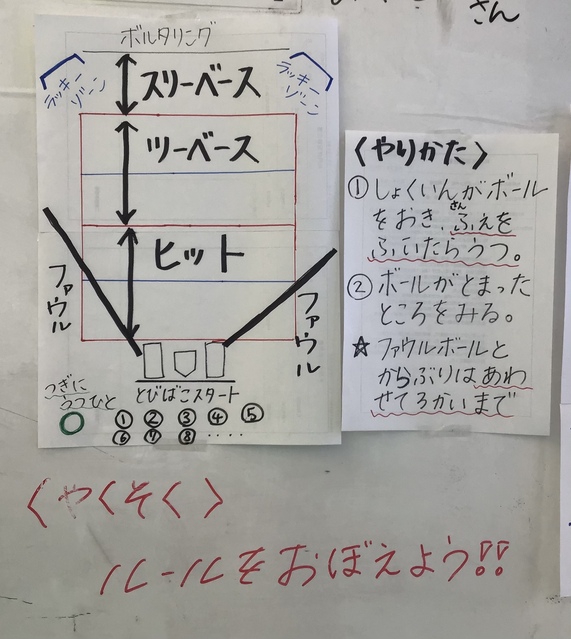 さん
ボルタリング
ラッキー
ゾーン
スリーベース
ラッキー
ゾーン
ツーベース
ヒット
ファウル
ファウル
とびばこスタート
つぎに
うつひと
① ② ③ ④ ⑤
⑥ ⑦ ⑧ ・・・・・
〈やりかた〉
①しょくいんがボール
をおき、さんふえを
ふいたらうつ。
②ボールがとまった
ところをみる。
☆ファウルボールと
からぶりはあわ
せて3かいまで
〈やくそく〉
ルールをおぼえよう!!